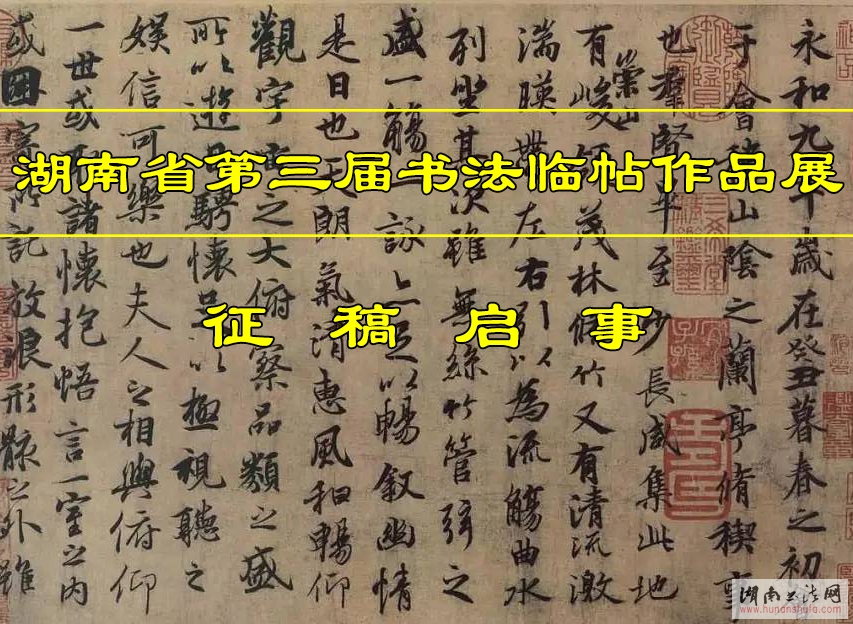 湖南省第三届书法临帖作品展
征稿启事
永和九年歲在癸丑暮春之初
于會稽山陰之蘭亭脩稧事
也羣賢畢至少長咸集此地
崇山
有峻領茂林脩竹又有清流激
湍暎帶左右引以為流觴曲水
列坐其次雖無絲竹管弦之
盛一觴一詠亦足以暢叙幽情
是日也天朗氣清惠風和暢仰
觀宇宙之大俯察品類之盛
所以遊目騁懷足以極視聽之
娛信可樂也夫人之相與俯仰
一世或取諸懷抱悟言一室之内
或因寄所託放浪形骸之外雖
湖南书法网
www.hunanshufa.com